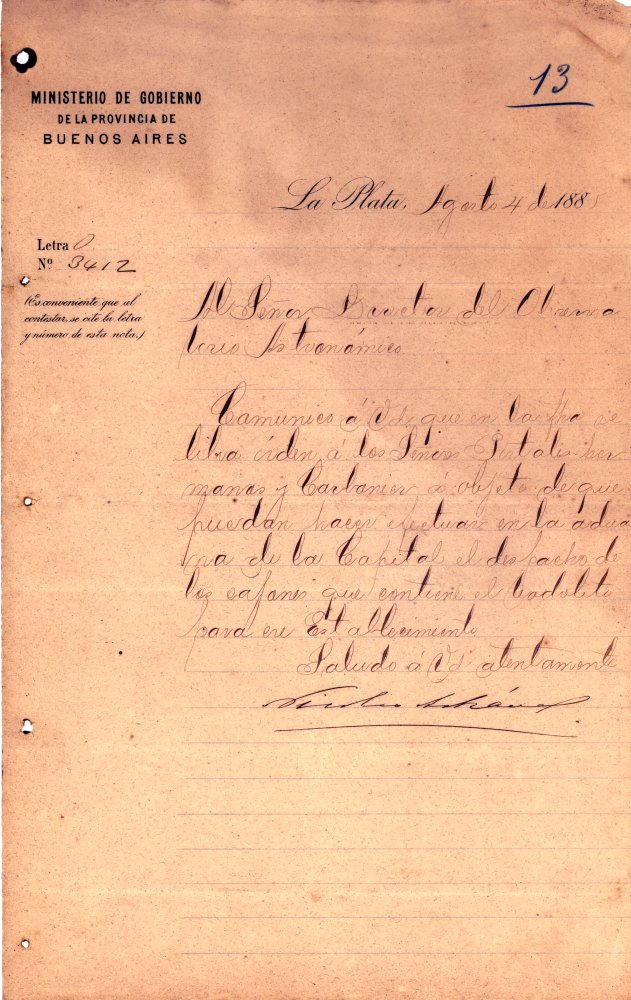 13
MINISTERIO DE GOBIERNO
DE LA PROVINCIA DE
BUENOS AIRES
La Plata, Agosto 4 de 1885
Letra O
Nº 3412
(Es conveniente que al
contestar, se cite la letra
y número de esta nota.)
Al Señor Director del Observa
torio Astronómico
Comunico á Vd. que en la fha se
libra órden á los Señores Portalis her
manos y Carbonier á objeto de que
puedan hacer efectuar en la adua
na de la Capital el despacho de
los cajones que contiene el teodolito
para ese Establecimiento
Saludo á Vd atentamente